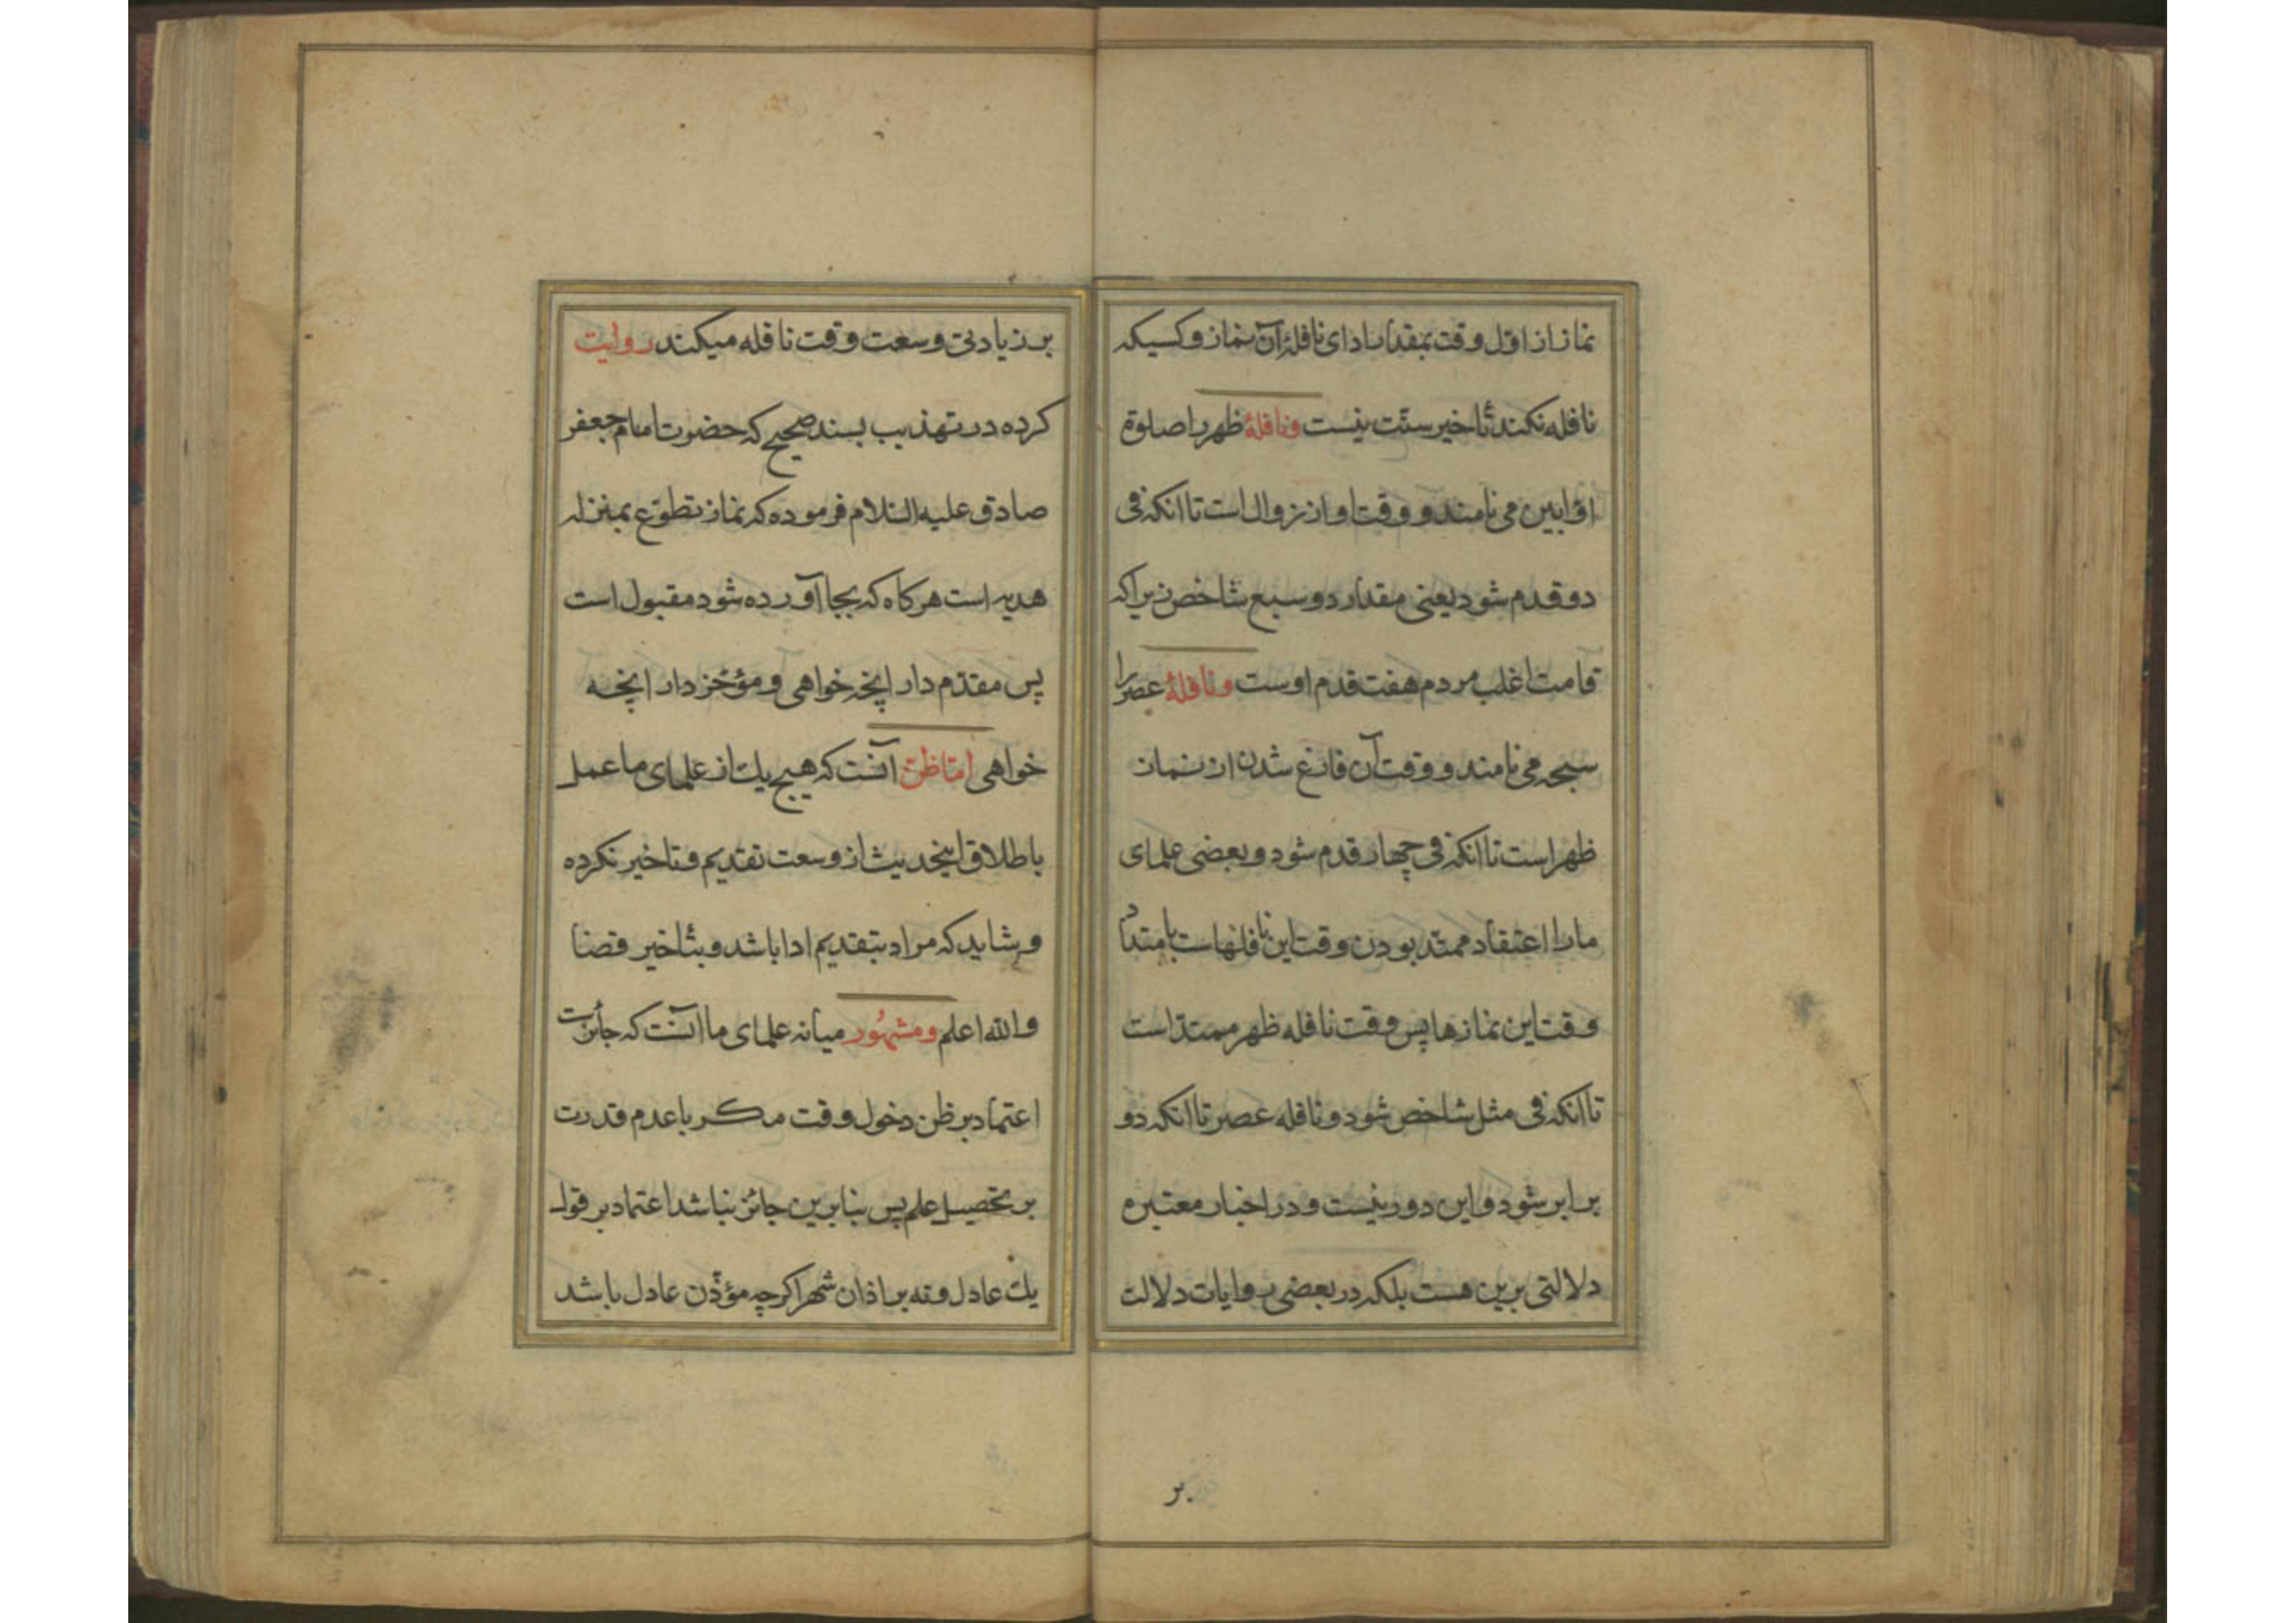 نماز از اوّل وقت بمقدار ادای نافلهٔ آن نماز و کسیکه
نافله نکند تأخیر سنّت نیست و نافلهٔ ظهر را صلوة
اوّابین می نامند و وقت او از زوال است تا انکه فی
دو قدم شود یعنی مقدار دو سبع شاخص زیرا که
قامت اغلب مردم هفت قدم اوست و نافلهٔ عصر را
سبحه می نامند و وقت آن فارغ شدن از نماز
ظهر است تا انکه فی چهار قدم شود و بعضی علمای
ما را اعتقاد ممتدّ بودن وقت این نافلهاست بامتداد
وقت این نمازها پس وقت نافله ظهر ممتدّ است
تا انکه فی مثل شاخص شود و نافله عصر تا انکه دو
برابر شود و این دور نیست و در اخبار معتبره
دلالتی برین هست بلکه در بعضی روایات دلالت
بر
بر زیادتی وسعت وقت نافله میکند روایت
کرده در تهذیب بسند صحیح که حضرت امام جعفر
صادق علیه السّلام فرموده که نماز تطوّع بمنزله
هدیه است هرکاه که بجا آورده شود مقبول است
پس مقدّم دار انچه خواهی و مؤخّر دار انچه
خواهی امّا ظنّ آنست که هیچ یک از علمای ما عمل
باطلاق اینحدیث از وسعت تقدیم و تاخیر نکرده
و شاید که مراد بتقدیم ادا باشد و بتأخیر قضا
والله اعلم و مشهُور میانه علمای ما آنست که جائزست
اعتماد بر ظن دخول وقت مکر با عدم قدرت
بر تحصیل علم پس بنابرین جائز نباشد اعتماد بر قول
یک عادل و نه بر اذان شهر اکرچه مؤذّن عادل باشد